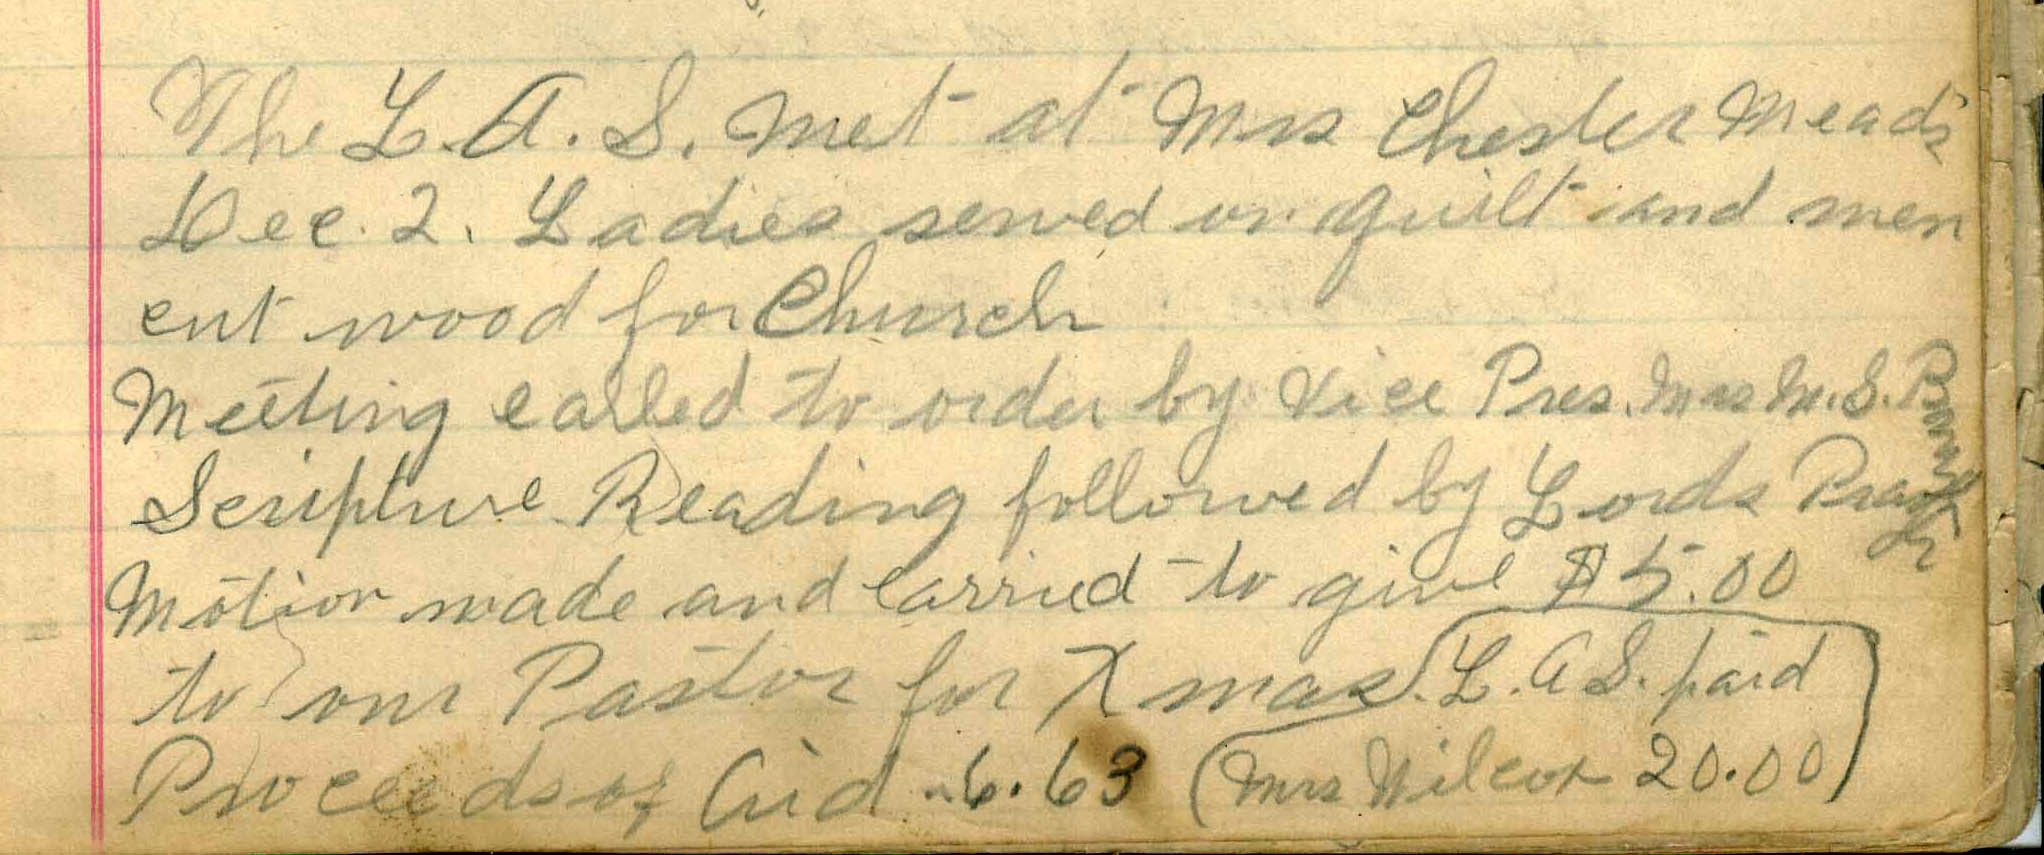 The L.A.S. met at Mrs Chester Mead's
Dec. 2. Ladies sewed on quilt and men
cut wood for Church
Meeting called to order by Vice Pres. Mrs M.S.
Scripture Reading followed by Lords Prayer
Motion made and carried to give $5.00
to our Pastor for Xmas. L.A S. paid
Proceeds of Aid - 6.63 (Mrs Wilcox 20.00)